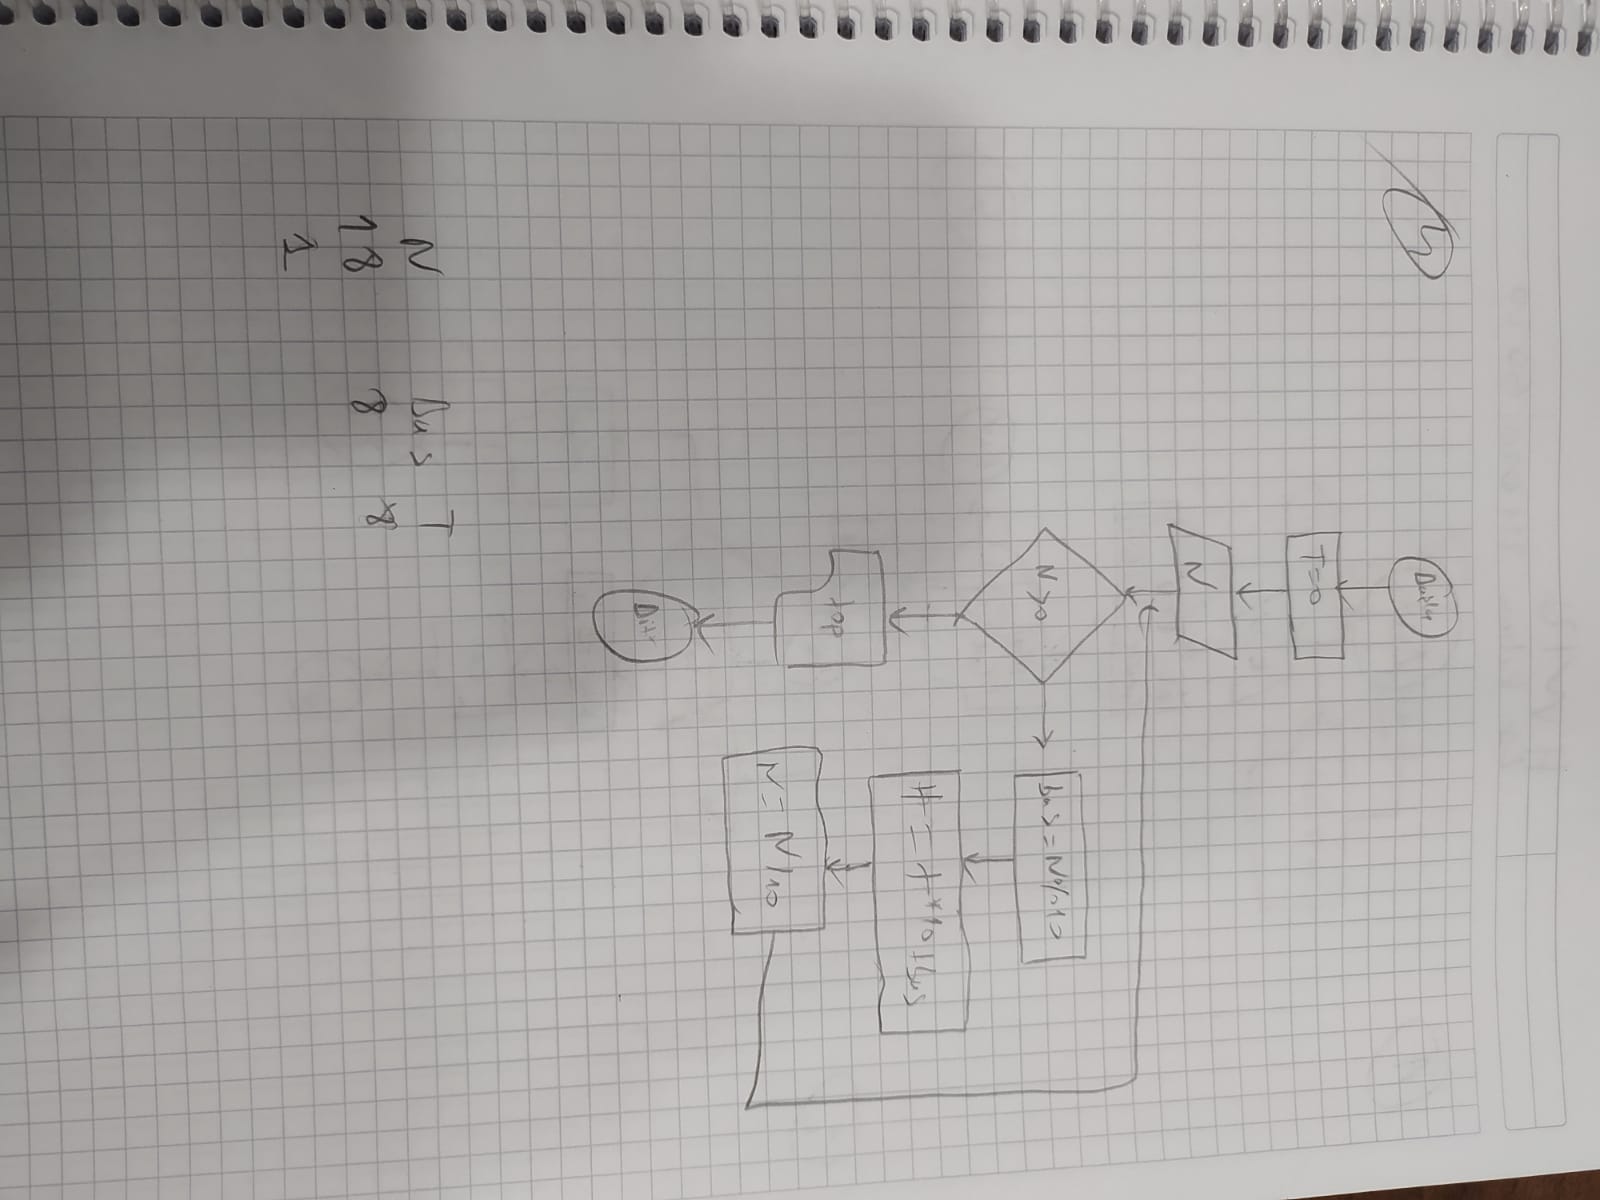 Başla
T=0
N
N>0
bas=N%10
t=t*10+bas
N=N/10
top
Bitir
N bas T
18 8 8
1